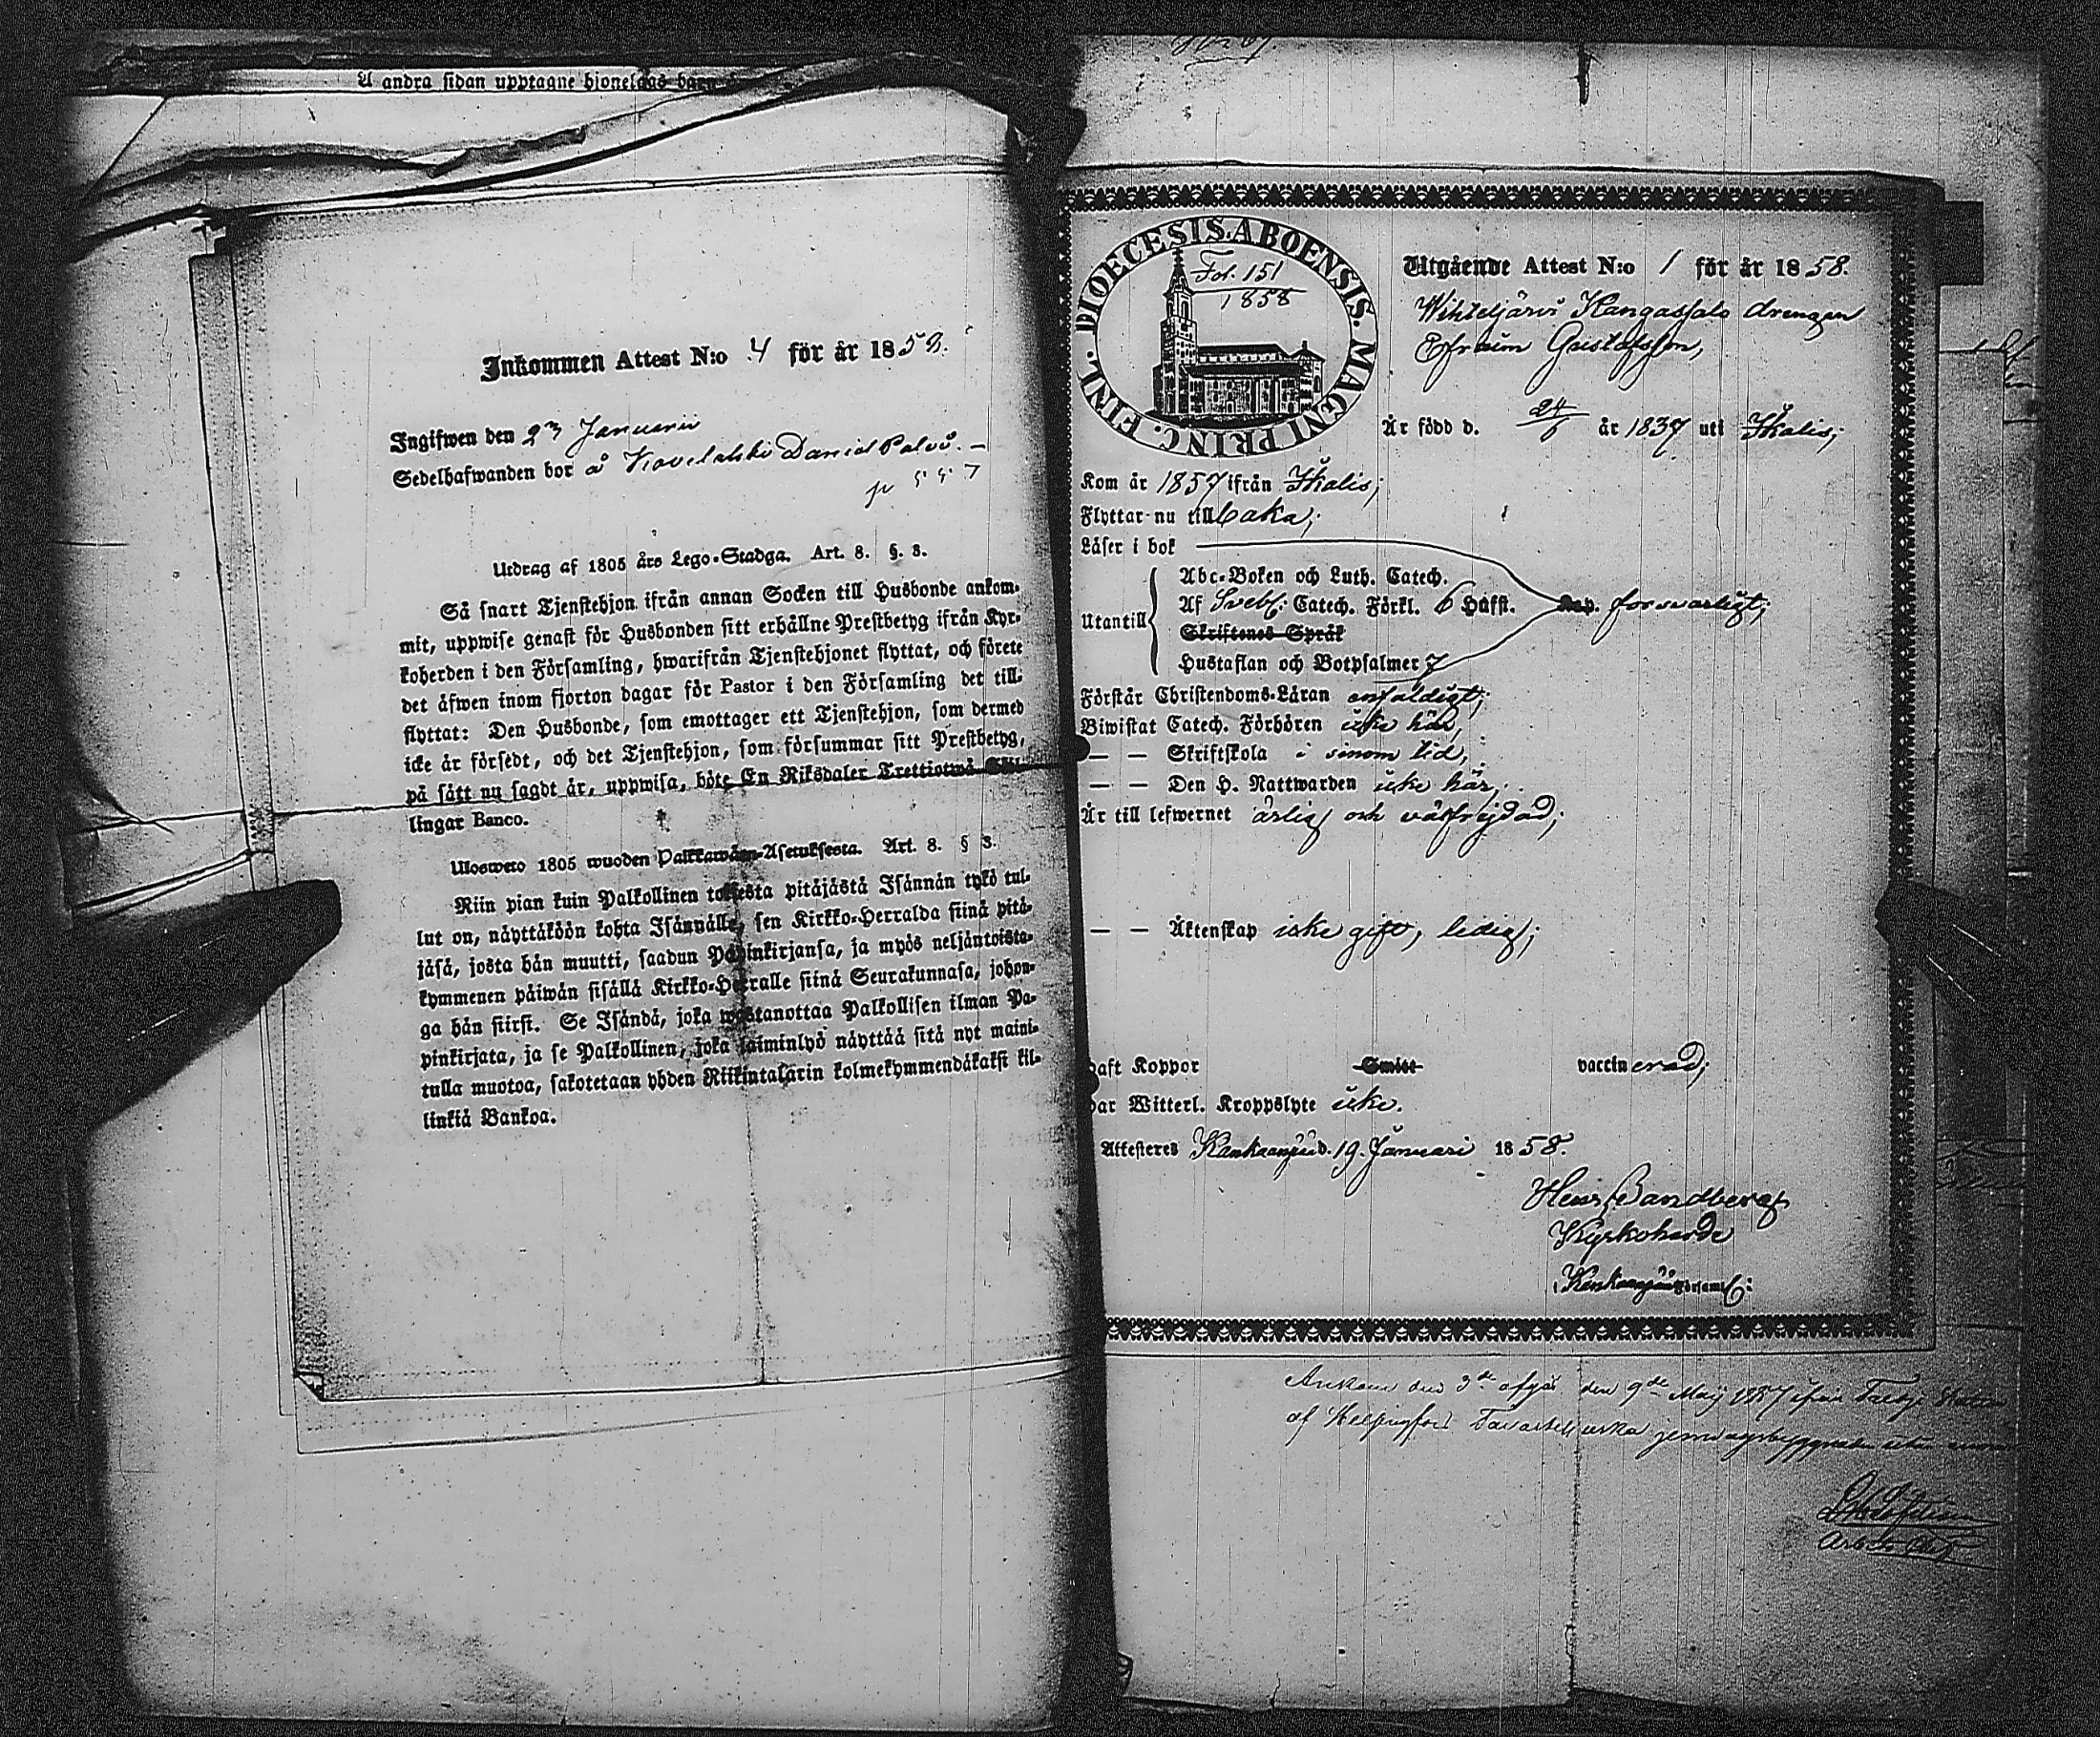 Å andra sidan upptagne hjonelags barn
Inkommen Attest N:o 4 för år 1858.
Ingifwen den 23 Januarii
Sedelhafwanden bor å Daniel Palvo. —
p 557
Utdrag af 1805 års Lego-Stadga. Art. 8. §. 3.
Så snart Tjenstehjon ifrån annan Socken till Husbonde ankom-
mit, uppwise genast för Husbonden sitt erhållne Prestbetyg ifrån Kyr-
koherden i den Församling, hwarifrån Tjenstehjonet flyttat, och förete
det äfwen inom fjorton dagar för Pastor i den Församling det till-
flyttat: Den Husbonde, som emottager ett Tjenstehjon, som dermed
icke är försedt, och det Tjenstehjon, som försummar sitt Prestbetyg,
på sätt nu sagdt är, uppwisa, böte En Riksdaler Trettiotwå Skil-
lingar Banco.
Ulosweto 1805 wuoden Palkkawäen-Asetuksesta. Art. 8. § 3.
Niin pian kuin Palkollinen toisesta pitäjästä Isännän tykö tul-
lut on, näyttäköön kohta Isännälle, sen Kirkko-Herralda siinä pitä-
jäsä, josta hän muutti, saadun Papinkirjansa, ja myös neljäntoista-
kymmenen päiwän sisällä Kirkko-Herralle siinä Seurakunnasa, johon-
ga hän siirst. Se Isändä, joka wastanottaa Palkollisen ilman Pa-
pinkirjata, ja se Palkollinen, joka laiminlyö näyttää sitä nyt maini-
tulla muotoa, sakotetaan yhden Riikintalarin kolmekymmendäkaksi kil-
linkiä Bankoa.
DIOECESIS. ABOENSIS. MAGNI PRINC. FINL.
Fol. 151
1858
Utgående Attest N:o 1 för år 1858.
Wihteljärvi Kangassalo drengen
Efraim Gustafsson,
Är född d. 24/6 år 1837 uti Ikalis;
Kom år 1857 ifrån Ikalis;
Flyttar nu tillbaka;
Läser i bok
Abc-Boken och Luth. Catech.
Utantill Af Svebl: Catech. Förkl. 6 Hufst. Kap. försvarligt;
Skriftenes Språk
Hustaflan och Botpsalmer 7
Förstår Christendoms-Läran enfaldigt;
Biwistat Catech. Förhören icke här,
— — Skriftskola i sinom tid,
— — Den H. Nattwarden icke här;
Är till lefwernet ärlig och välfrejdad;
— — Äktenskap icke gift, ledig;
Haft Koppor Smitt vaccinerad;
Har Witterl. Kroppslyte icke.
Attesteres Kankaanpää d. 19. Januari 1858.
Henr. Sandberg
Kyrkoherde
i Kankaanpää Församl:
Ankom den 3de afgår den 9de Maij 1857 ifrån
af Helsingfors Tavastehuska jernvägsbyggnaden utan